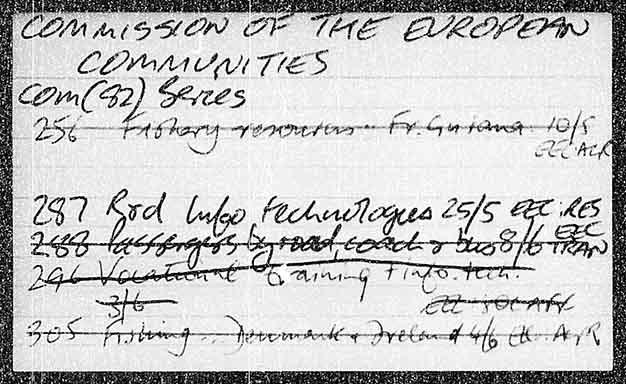 COMMISSION OF THE EUROPEAN
COMMUNITIES
COM(82) Series
256 Fishery resources.. Fr. Guiana 10/5
EEC AGR
287 R&d Info technologies 25/5 EEC RES
288 Passengers by road, coach & bus 8/6 EEC
TRAN
296 Vocational training & info. tech.
3/6 EEC SOC AFF
305 Fishing... Denmark & Ireland 4/6 EEC AGR